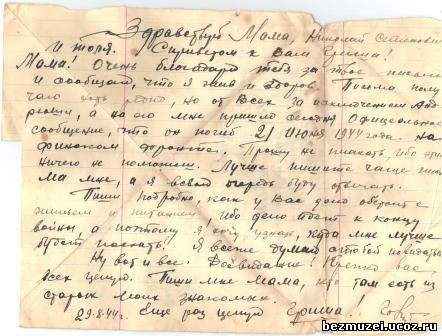 Здравствуй Мама, Николай Степанович
и Толя. С приветом к Вам Гриша!
Мама! Очень благодарю тебя за твое письмо
и сообщаю, что я жив и здоров. Письма полу
чаю от Всех за исключением Анд
а на его мне пришло сегодня Официальное
сообщение, что он погиб 21 Июня 1944 года на
финском фронте. Прошу не плакать, ибо этим
ничего не поможешь. Лучше пишите чаще пись
ма мне, а я в свою очередь буду отвечать.
Пиши подробно, как у Вас дело обстоит с
жильем и питанием, ибо дело идет к концу
войны, а поэтому я хочу узнать, куда мне лучше
будет поехать! Я все же думаю с тобой повидать
Ну вот и все. До свидания! Крепко вас
всех целую. Пиши мне Мама, кто там есть из
старых моих знакомых.
29.8.44г. Еще раз целую Гриша!
www.bezmuzei.ucoz.ru